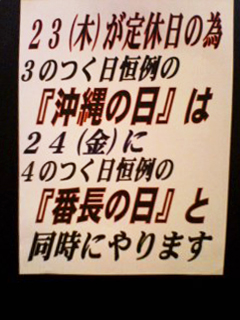 ２３(木)が定休日の為
３のつく日恒例の
『沖縄の日』は
２４(金)に
４のつく日恒例の
『番長の日』と
同時にやります